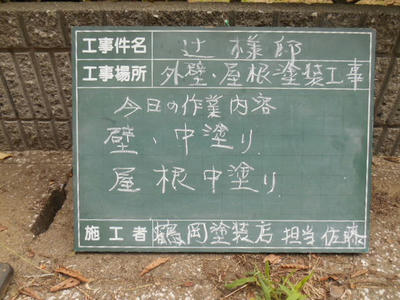 工事件名 辻様邸
工事場所 外壁、屋根塗装工事
今日の作業内容
壁、中塗り
屋根中塗り
施工者 鶴岡塗装店 担当佐藤